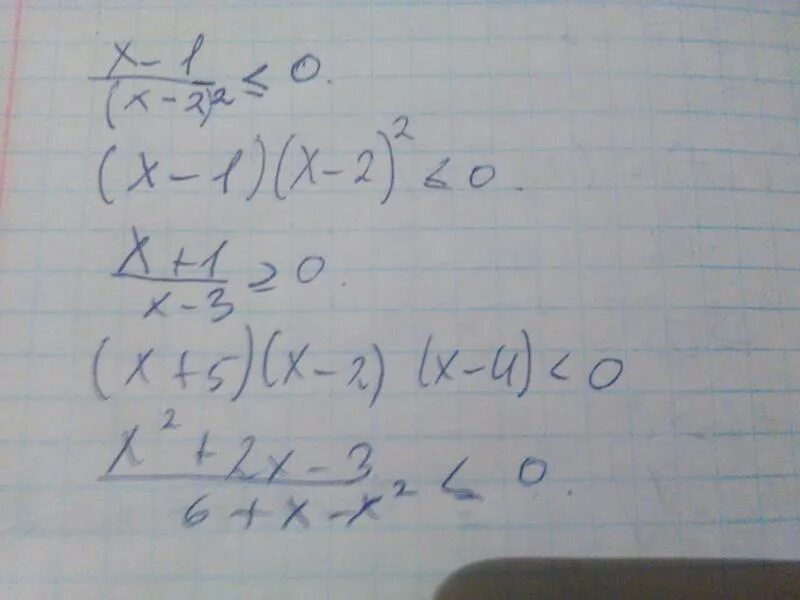 (x-1)/(x-2)² ≤ 0.
(x-1)(x-2)² ≤ 0.
(x+1)/(x-3) ≥ 0.
(x+5)(x-2) (x-4) < 0
(x²+2x-3)/(6+x-x²) ≤ 0.